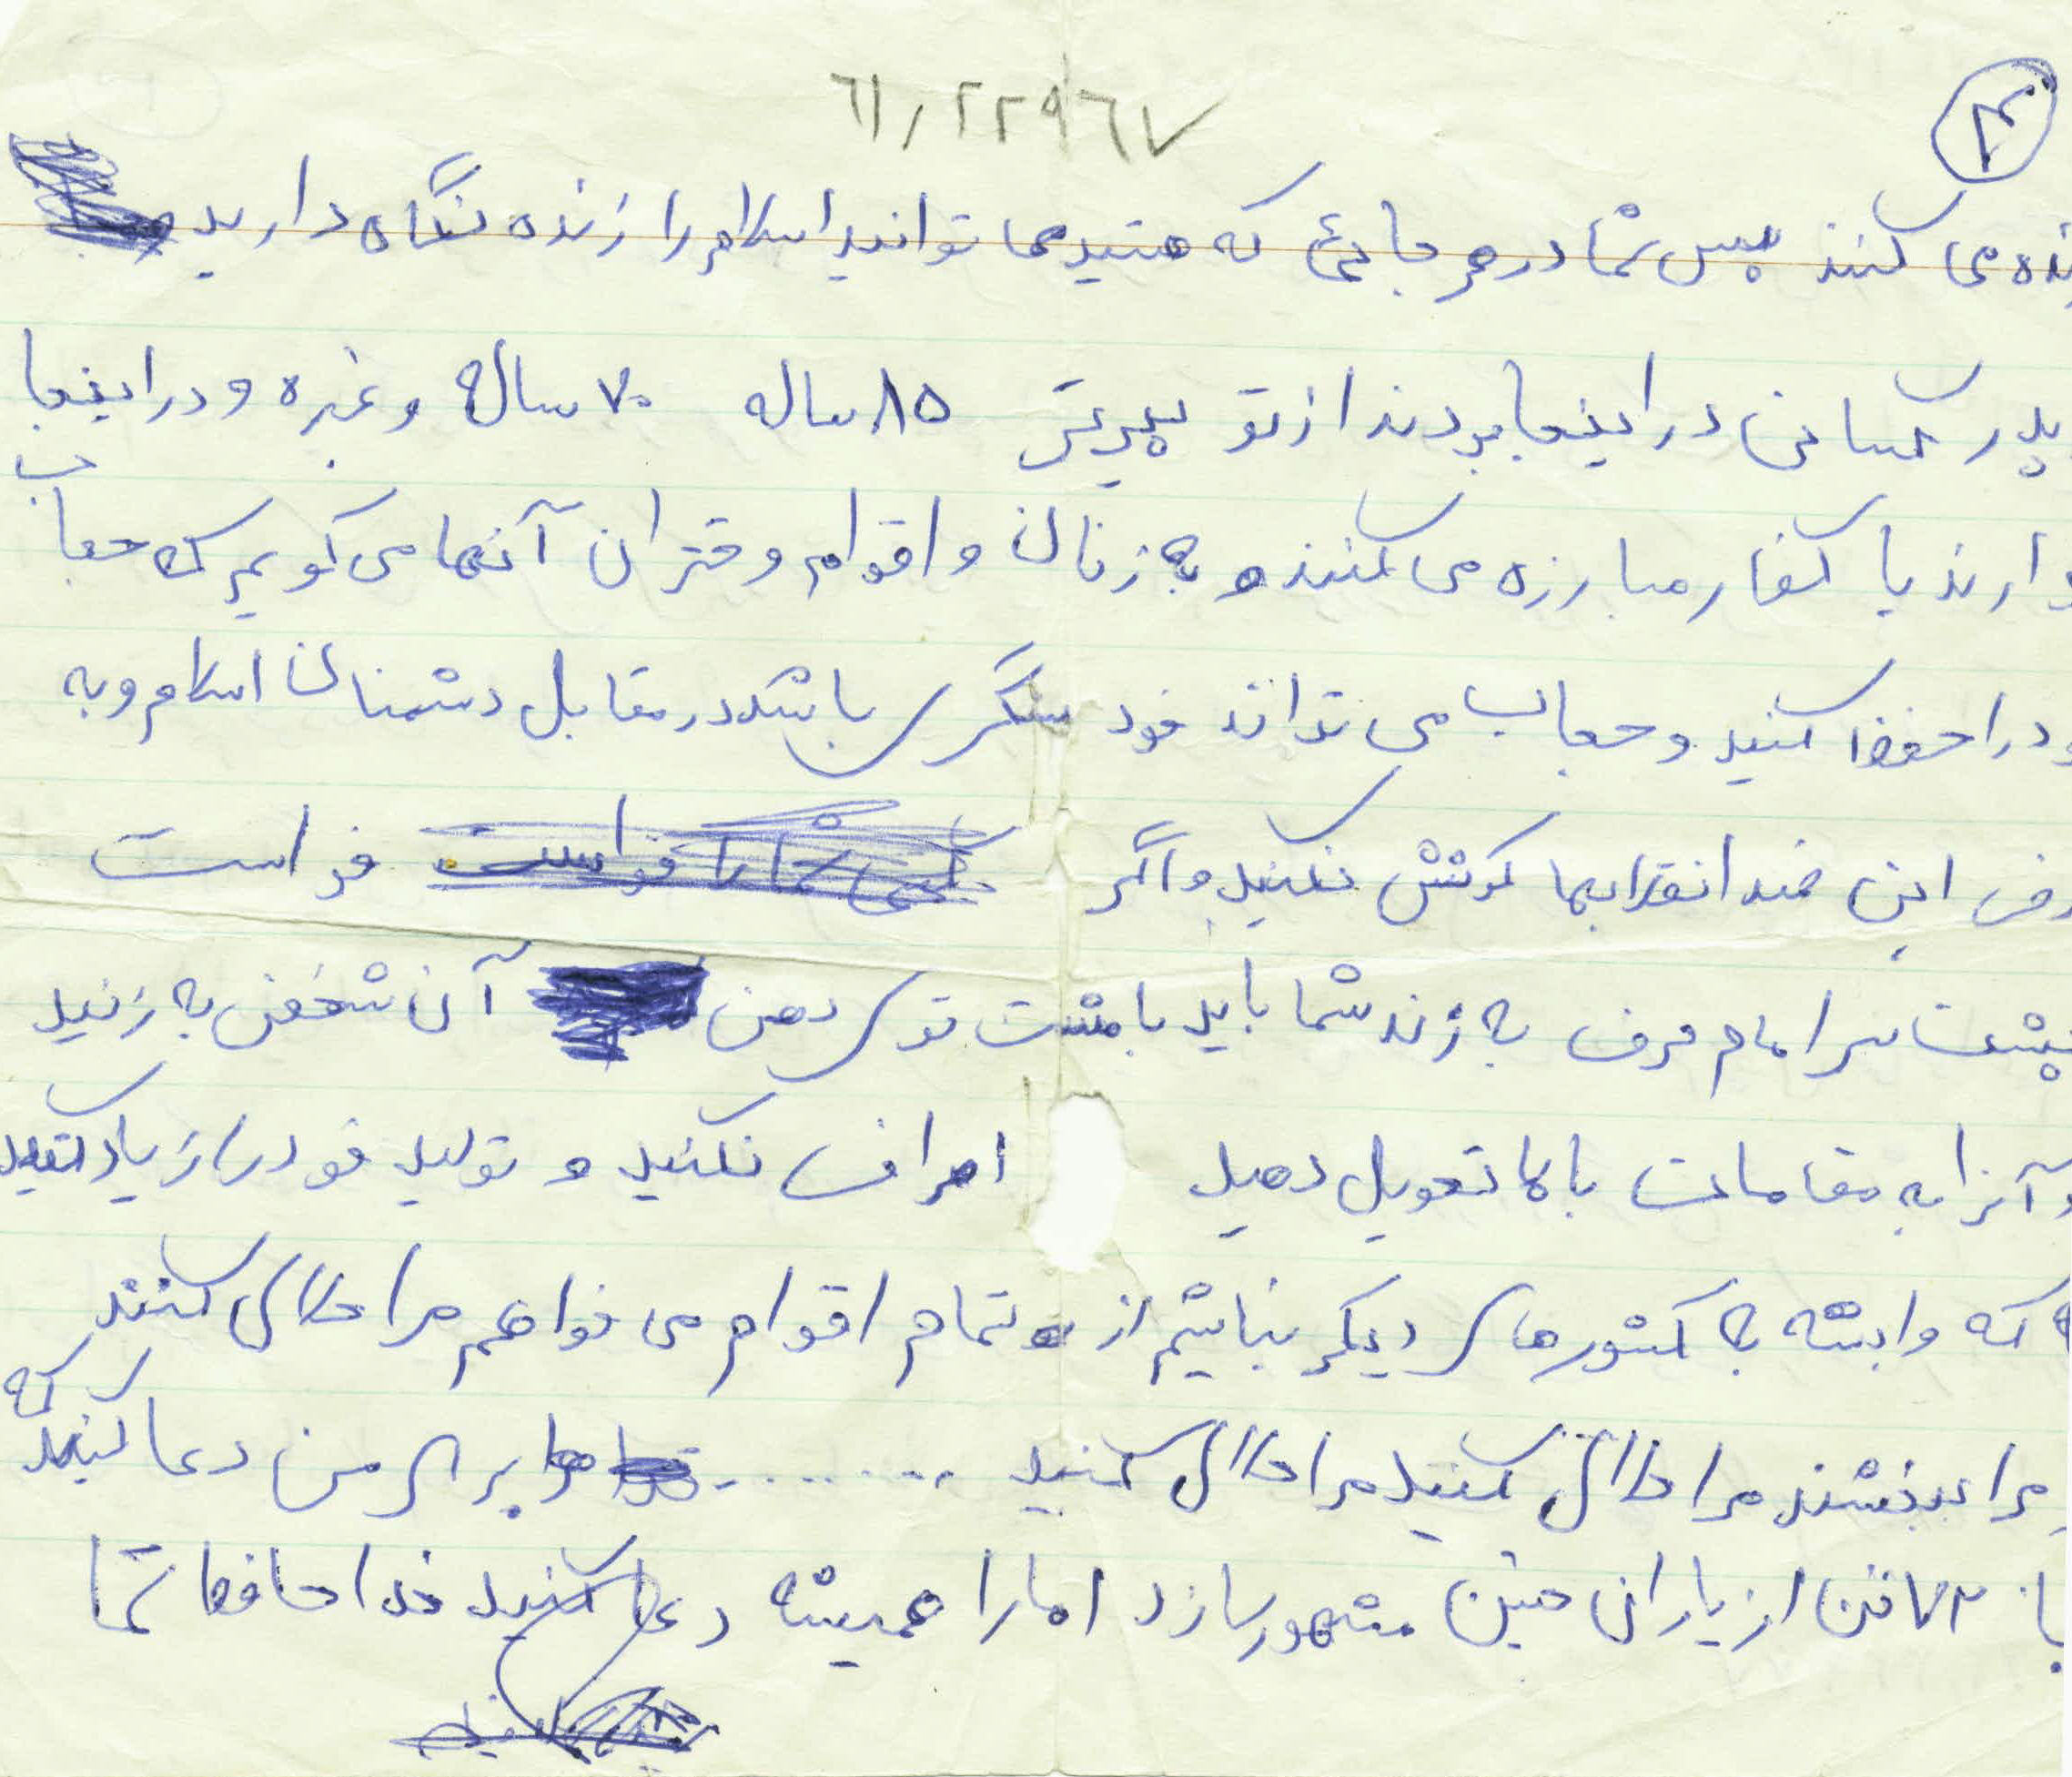 ۲
٦١/٢٢٩٦٧
می کنند پس شما در هر جائی که هستید می توانید اسلام را زنده نگاه دارید
پدر کسانی در اینجا بودند از تو پیرتر ۸۵ ساله ۷۰ ساله و غیره و در اینجا
دارند با کفار مبارزه می کنند و به زنان و اقوام و دختران آنها می گویم که حجاب
خود را حفظ کنید و حجاب می تواند خود سنگری باشد در مقابل دشمنان اسلام و به
حرف این ضد انقلابها گوش نکنید و اگر خواست
پشت سر امام حرف به زند شما باید با مشت توی دهن آن شخص به زنید
و آنرا به مقامات بالا تحویل دهید اسراف نکنید و تولید خود را زیاد کنید
که وابسته به کشورهای دیگر نباشیم از تمام اقوام می خواهم مرا حلال کنند
مرا ببخشند مرا حلال کنید مرا حلال کنید ........ برای من دعا کنید که
با ۷۲ تن از یاران حسین مشهور سازد امام را همیشه دعا کنید خدا حافظ شما